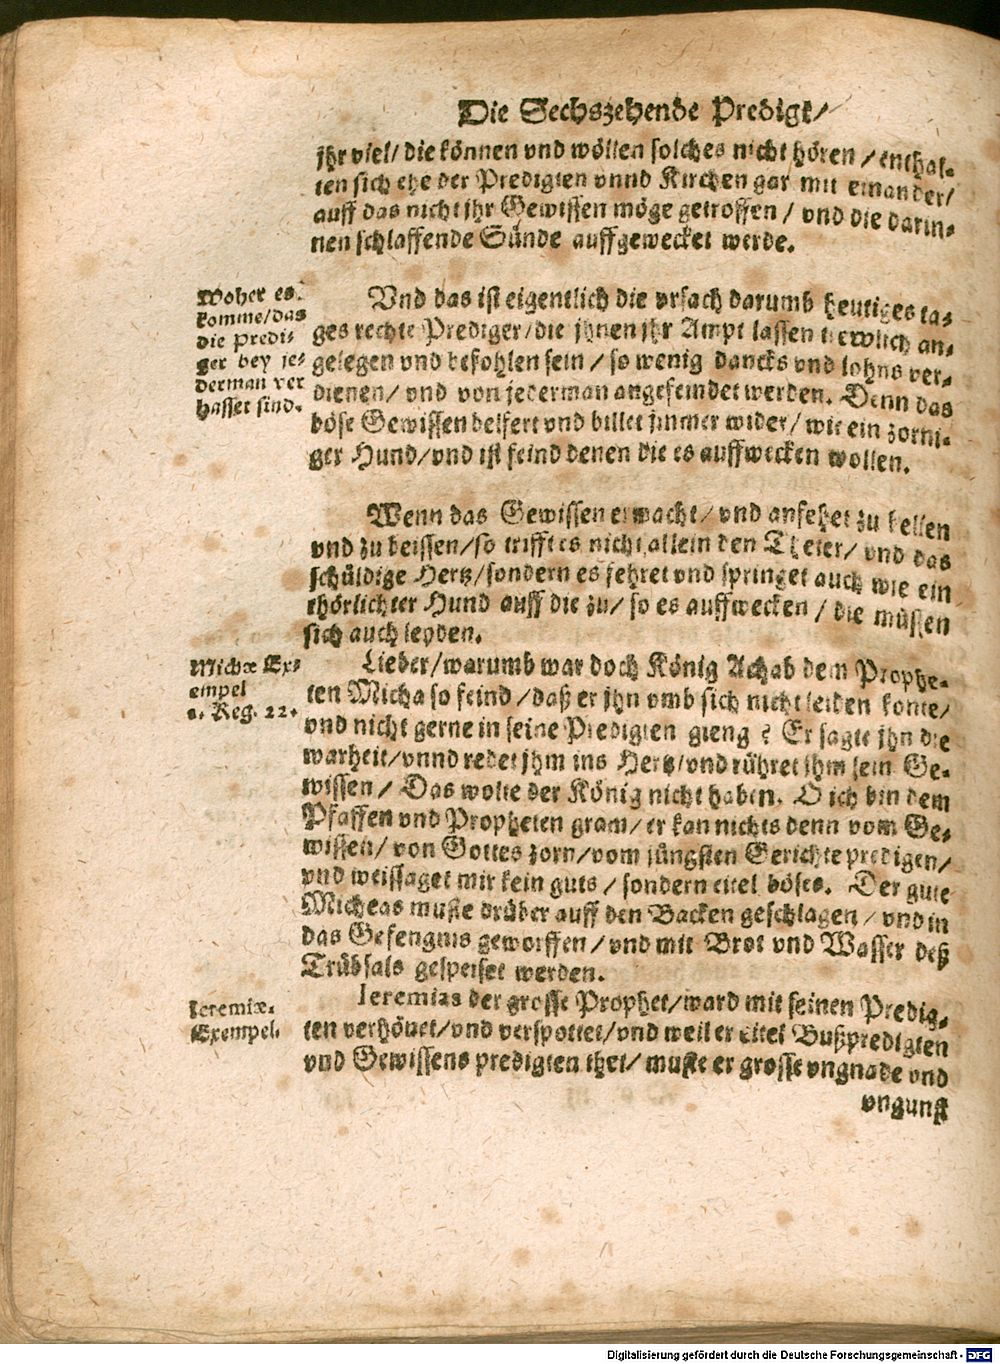 Die Sechszehende Predigt/
jhr viel/ die können vnd wöllen solches nicht hören / enthal-
ten sich ehe der Predigten vnnd Kirchen gar mit einander/
auff das nicht jhr Gewissen möge getroffen / vnd die darin-
nen schlaffende Sünde auffgewecket werde.
Woher es
komme/das
die Predi-
ger bey je-
derman ver
hasset sind.
Vnd das ist eigentlich die vrsach darumb heutiges ta-
ges rechte Prediger/die jhnen jhr Ampt lassen trewlich an-
gelegen vnd befohlen sein / so wenig dancks vnd lohns ver-
dienen/ vnd von jederman angefeindet werden. Denn das
böse Gewissen belfert vnd billet jmmer wider/ wie ein zorni-
ger Hund/vnd ist feind denen die es auffwecken wollen.
Wenn das Gewissen erwacht/ vnd anfehet zu bellen
vnd zu beissen/so trifft es nicht allein den Theter/ vnd das
schüldige Hertz/sondern es fehret vnd springet auch wie ein
thörlichter Hund auff die zu/ so es auffwecken / die müssen
sich auch leyden.
Michæ Ex-
empel
1. Reg. 22.
Lieber/warumb war doch König Achab dem Prophe-
ten Micha so feind /daß er jhn vmb sich nicht leiden konte/
vnd nicht gerne in seine Predigten gieng ? Er sagte jhn die
warheit/vnnd redet jhm ins Hertz/vnd rühret jhm sein Ge-
wissen / Das wolte der König nicht haben. O ich bin dem
Pfaffen vnd Propheten gram/ er kan nichts denn vom Ge-
wissen/ von Gottes zorn/vom jüngsten Gerichte predigen/
vnd weissaget mir kein guts / sondern eitel böses. Der gute
Micheas muste drüber auff den Backen geschlagen / vnd in
das Gefengnis geworffen / vnd mit Brot vnd Wasser deß
Trübsals gespeiset werden.
Ieremiæ.
Exempel.
Ieremias der grosse Prophet/ward mit seinen Predig-
ten verhönet/vnd verspottet/vnd weil er eitel Bußpredigten
vnd Gewissens predigten thet/ muste er grosse vngnade vnd
vngunst
Digitalisierung gefördert durch die Deutsche Forschungsgemeinschaft - DFG